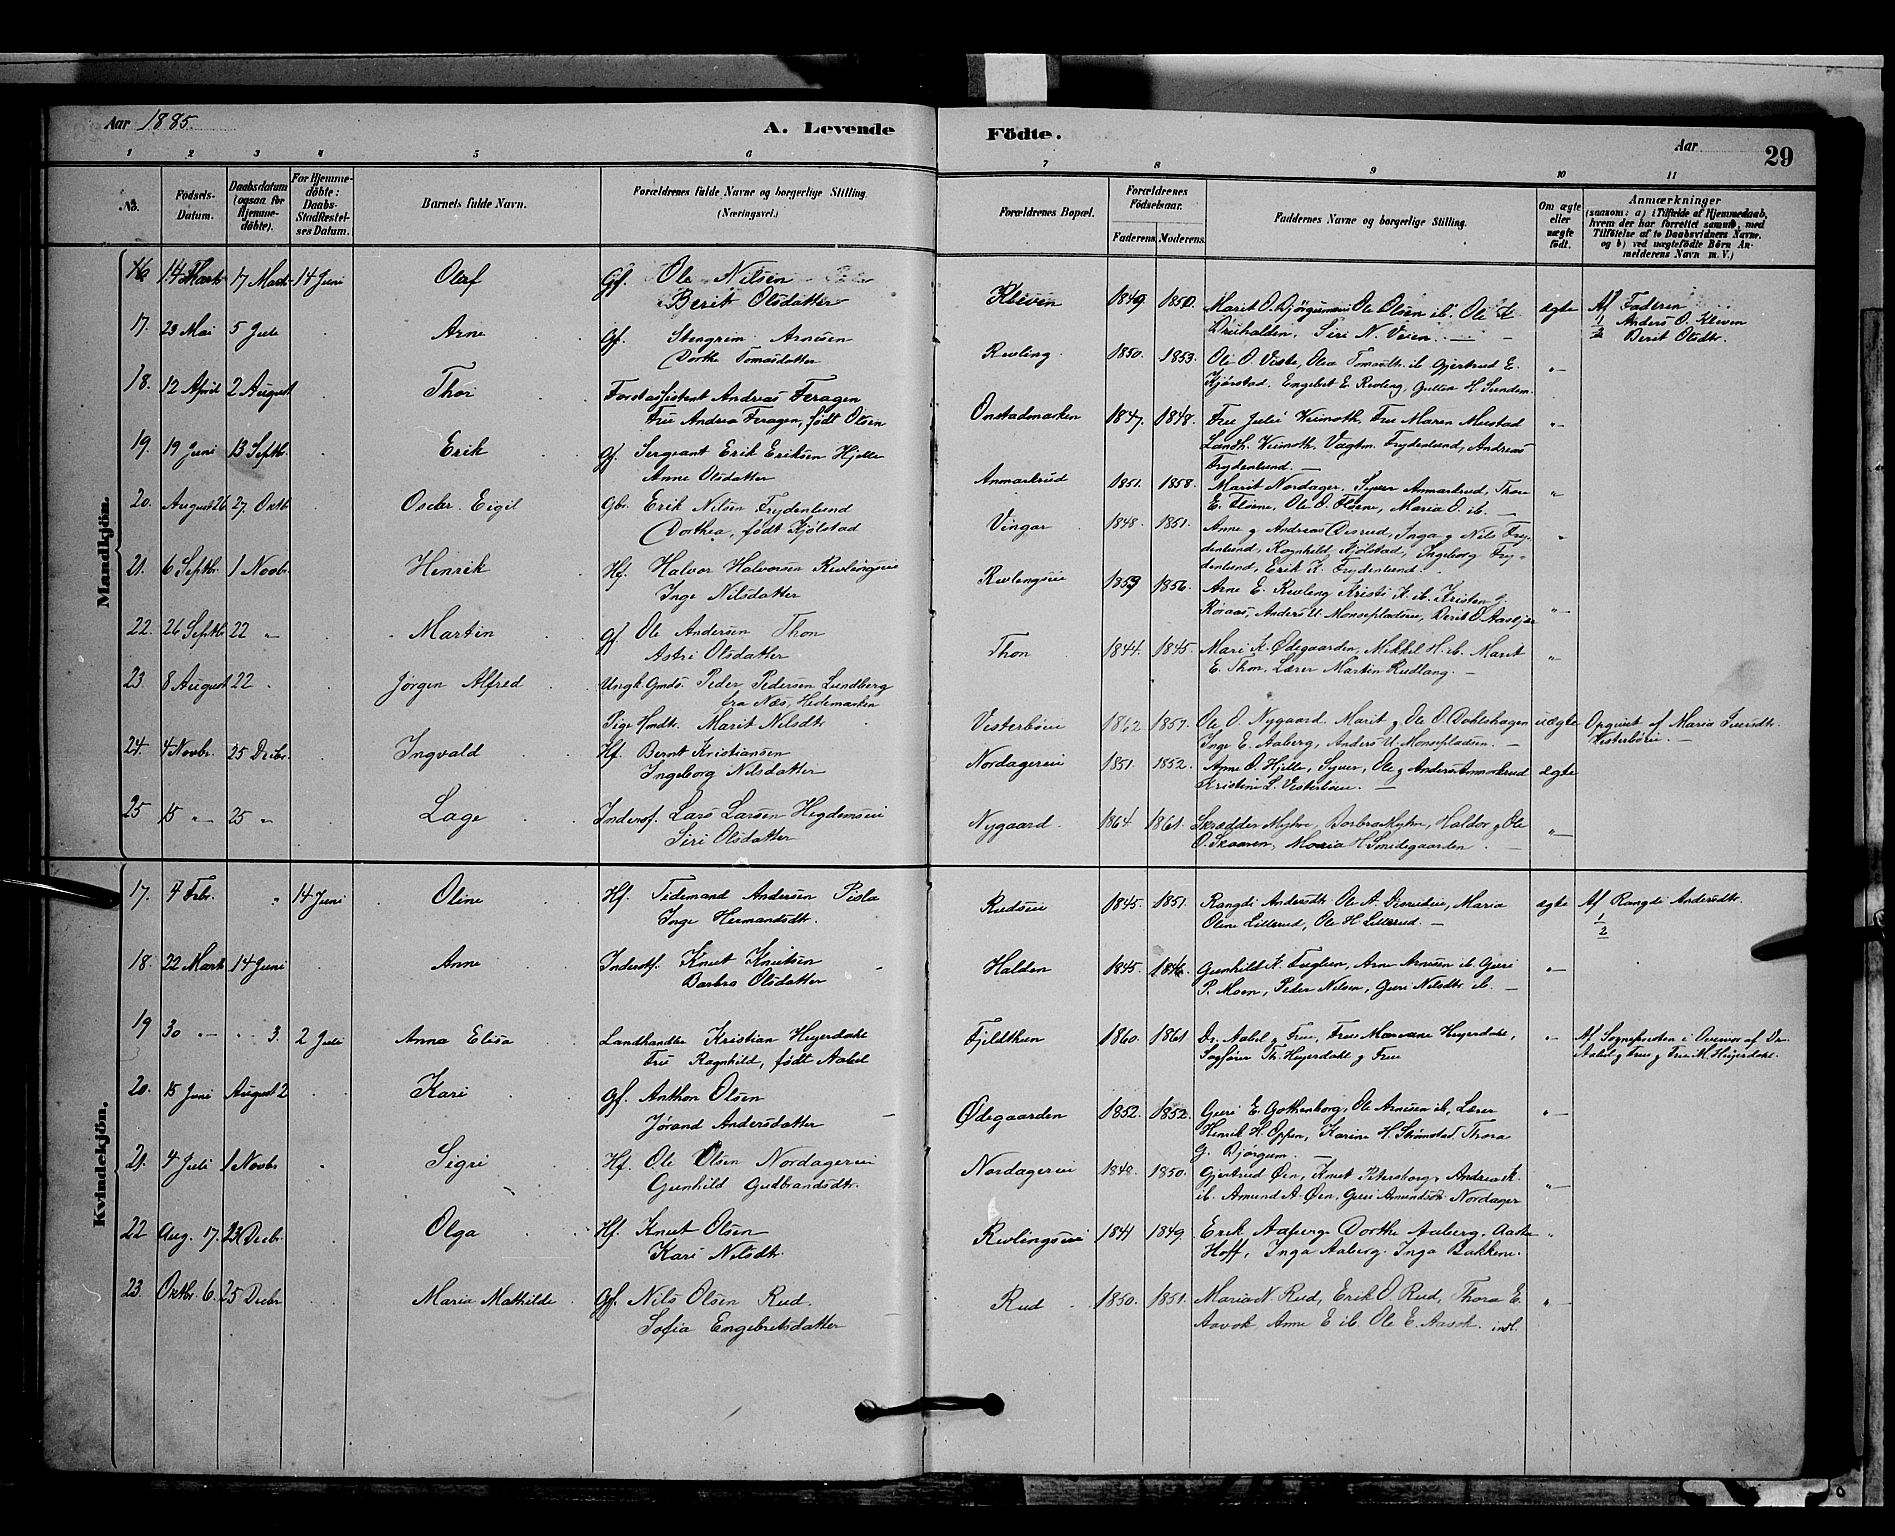 Aar 1885.
A. Levende Födte.
Aar
29
1 2 3 4 5 6 7 8 9 10 11
No.
Födsels-Datum.
Daabsdatum (ogsaa for Hjemmedöbte).
For Hjemmedöbte: Daabs-Stadfæstelses Datum.
Barnets fulde Navn.
Forældrenes fulde Navne og borgerlige Stilling. (Næringsvei.)
Forældrenes Bopæl.
Forældrenes Födselsaar.
Faderens. Moderens.
Faddernes Navne og borgerlige Stilling.
Om ægte eller uægte födt.
Anmærkninger
(saasom: a) i Tilfælde af Hjemmedaab, hvem der har forrettet samme, med Tilföielse af to Daabsvidners Navne, og b) ved uægtefödte Börn Anmelderens Navn m. V.)
Mandkjön.
16 14 Marts 17 Marts 14 Juni Olaf Gf. Ole Nilsen
Berit Olsdatter
Kleven 1849. 1850. Marit O. Bjørgumseie Ole Olsen ib. Ole K.
Siri N. Veien. ægte Af Faderen
1/2 Anders O. Kleven
Berit Olsdtr.
17. 23 Mai 5 Juli Arne Gf. Stengrim Arnesen
Dorthe Tomasdatter
Revling. 1850. 1853. Ole O. Veste, Olea Tomasdtr. ib. Gjertrud E.
Kjørstad. Engebret E. Revling, H. Sundem.
18. 12 April 2 August Thor Forstassistent Andreas Feragen
Fru Andrea Feragen, født Olsen
Onstadmarken 1847. 1848. Fru Julie Keimoth, Fru Maren Mustad
Landh. Keimoth. Vagtm. Frydenlund, Andreas
Frydenlund.
19. 19 Juni 13 Septb. Erik Gf. Sergeant Erik Eriksen Hjelle
Anne Olsdatter
Anmarkrud 1851. 1858. Marit Nordager, Syver Anmarkrud, Thore
E. Flørne, Ole O. Flørne, Maria O. ib.
20. August 26 27. Oktb. Oscar Eigil Gbr. Erik Nilsen Frydenlund
Dorthea, født Kjølstad
Vingar 1848. 1851. Anne g Andreas Dæsrud, Inga g Nils Fry-
denlund, Ragnhild Kjølstad, Ingeborg Fry-
denlund, Erik K. Frydenlund.
21. 6 Septbr. 1 Novbr. Henrik Hf. Halvor Halvorsen Revlingseie
Inge Nilsdatter
Revlingseie 1859 1856. Arne E. Revling Kristi K. ib. Kristen G.
Røraas, Anders U. Monsepladsen, Berit O. Aaskjær
22. 26 Septbr. 22 " Martin Gf. Ole Andersen Thon
Astri Olsdatter
Thon 1844. 1845. Mari K. Ødegaarden, Mikkel H. ib. Marit
E. Thon, Lærer Martin Rudlang.
23. 8 August 22 Jørgen Alfred Ungk. Gmds. Peder Pedersen Lundberg
fra Næs, Hedemarken
Pige Hmdtr. Marit Nilsdtr.
Vesterbøeie 1862 1857. Ole O. Nygaard. Marit g Ole O. Dokleshagen
Inge E. Aaberg, Anders U. Monsepladsen. uægte Opgivet af Maria Iversdtr.
Vesterbøeie.
24. 4 Novbr. 25 Decbr. Ingvald Hf. Bernt Kristiansen
Ingeborg Nilsdatter
Nordagereie 1851. 1852. Anne O. Hjelle, Syver, Ole g Anders Anmarkrud
Kristine L. Vesterbøeie. ægte
25 15 " 25 " Lage Inderst. Lars Larsen Hegdemseie
Siri Olsdatter
Nygaard. 1864 1861. Skrædder Myhre, Barbra Myhre, Haldor g Ole
O. Skaaren, Maria H. Smidegaarden.
Kvindekjön.
17. 4 Febr. " 14 Juni Oline Hf. Tidemand Andersen Pisla
Inge Hermandsdtr.
Rudseie 1845. 1851. Rangdi Andersdtr. Ole A. Maria
Oline Lillerud, Ole H. Lillerud. ægte Af Rangdi Andersdtr.
1/2
18. 22 Marts 14 Juni Anne Inderst. Knut Knutsen
Barbro Olsdatter
Halden 1845. 1846. Gunhild K. Fuglien, Arne Arnesen ib. Guri
P. Moen, Peder Nilsen, Guri Nilsdtr. ib.
19 30 " " 3. 2 Juli Anna Elisa Landhandler Kristian Heyerdahl
Fru Ragnhild, født Aabel
Fjeldheim 1860. 1861 Dr. Aabel g Frue, Frue Marvane Heyerdahl,
Sagfører Th. Heyerdahl g Frue Af Sognepresten i Overvær af Dr.
Aabel g Frue g Frue M. Heyerdahl.
20. 15 Juni August 2 Kari Gf. Anthon Olsen
Jørand Andersdatter
Ødegaarden 1852. 1852. Guri E. Gothenborg, Ole Arnesen ib, Lærer
Henrik H. Oppen, Karine H. Strømstad, Thora
G. Bjørgum.
21. 4 Juli 1 Novbr. Sigri Hf. Ole Olsen Nordagereie
Gunhild Gudbrandsdtr.
Nordagereie 1848. 1850. Gjertrud Øen, Knut Petersborg, Andrea K.
ib. Amund A. Øen, Guri Amundsdtr. Nordager
22 Aug. 17. 23 Decbr. Olga Hf. Knut Olsen
Kari Nilsdtr.
Revlingseie 1841 1849. Erik Aaberg. Dorthe Aaberg. Aasta
Hoff, Inga Aaberg. Inga Bakkene.
23. Oktbr. 6. 25 Decbr. Maria Mathilde Gf. Nils Olsen Rud.
Sofia Engebretsdatter
Rud 1850. 1851. Maria N. Rud, Erik O. Rud, Thora E.
Aavok, Anne E. ib. Ole E. Aavok. indl.